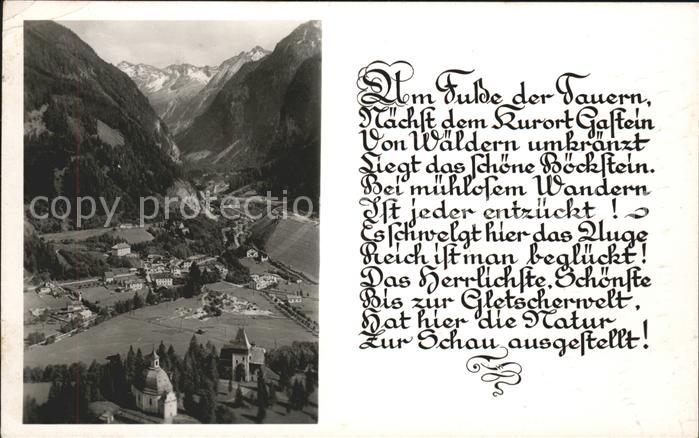 Am Fuße der Tauern,
Nächst dem Kurort Gastein
Von Wäldern umkränzt
Liegt das schöne Böckstein.
Bei mühlosem Wandern
Ist jeder entzückt!
Es schwelgt hier das Auge
Reich ist man beglückt!
Das Herrlichste, Schönste
Bis zur Gletscherwelt,
Hat hier die Natur
Zur Schau ausgestellt!
copyright protection